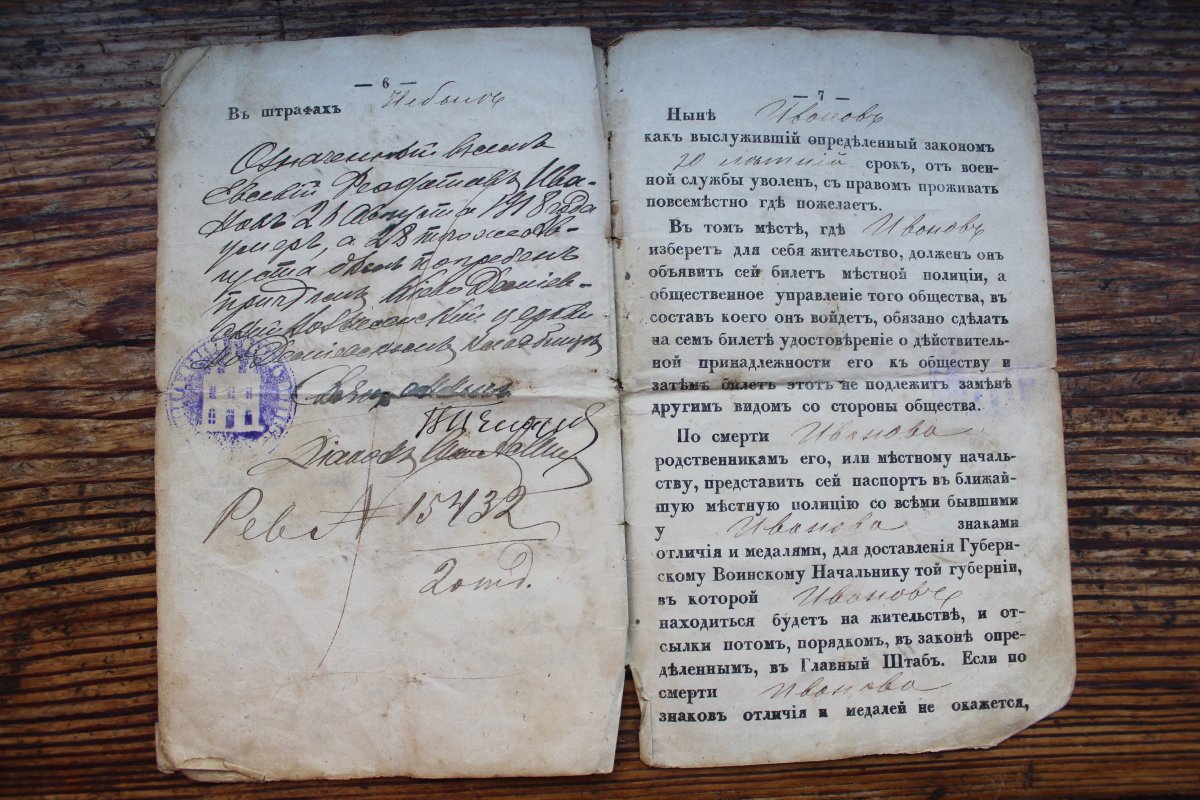 — 6 —
Въ штрафахъ Небылъ
Означенный
Евсевій Ива-
новъ 21 Августа 1918 года
умеръ, а 23 того же Ав-
густа былъ погребенъ
причтомъ
церкви
на кладбищѣ
Священникъ
Діаконъ
Рев. № 15432
2 отд.
— 7 —
Нынѣ Ивановъ
какъ выслужившій опредѣленный закономъ
20 лѣтній срокъ, отъ воен-
ной службы уволенъ, съ правомъ проживать
повсемѣстно гдѣ пожелаетъ.
Въ томъ мѣстѣ, гдѣ Ивановъ
изберетъ для себя жительство, долженъ онъ
объявить сей билетъ мѣстной полиціи, а
общественное управленіе того общества, въ
составъ коего онъ войдетъ, обязано сдѣлать
на семъ билетѣ удостовѣреніе о дѣйствитель-
ной принадлежности его къ обществу и
затѣмъ билетъ этотъ не подлежитъ замѣнѣ
другимъ видомъ со стороны общества.
По смерти Иванова
родственникамъ его, или мѣстному началь-
ству, представить сей паспортъ въ ближай-
шую мѣстную полицію со всѣми бывшими
у Иванова знаками
отличія и медалями, для доставленія Губерн-
скому Воинскому Начальнику той губерніи,
въ которой Ивановъ
находиться будетъ на жительствѣ, и от-
сылки потомъ, порядкомъ, въ законѣ опре-
дѣленнымъ, въ Главный Штабъ. Если по
смерти Иванова
знаковъ отличія и медалей не окажется,